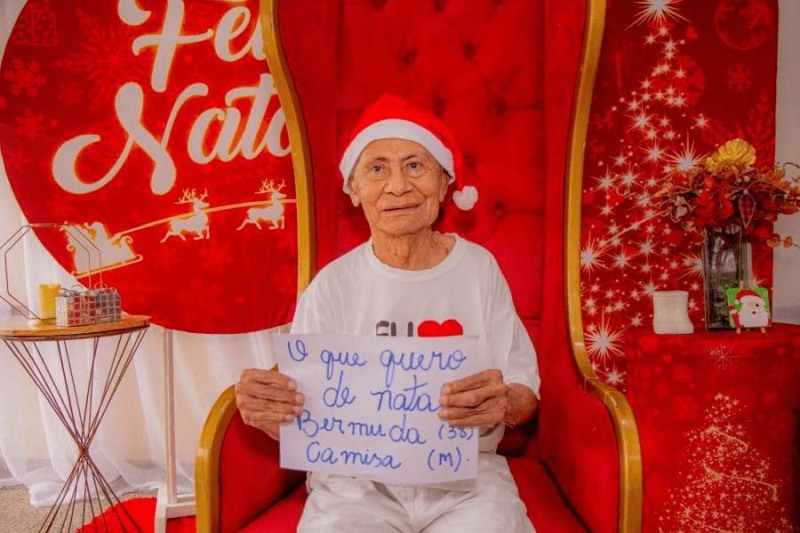 Feliz
Natal
EU
O que quero
de natal
Bermuda (38)
Camisa (M).